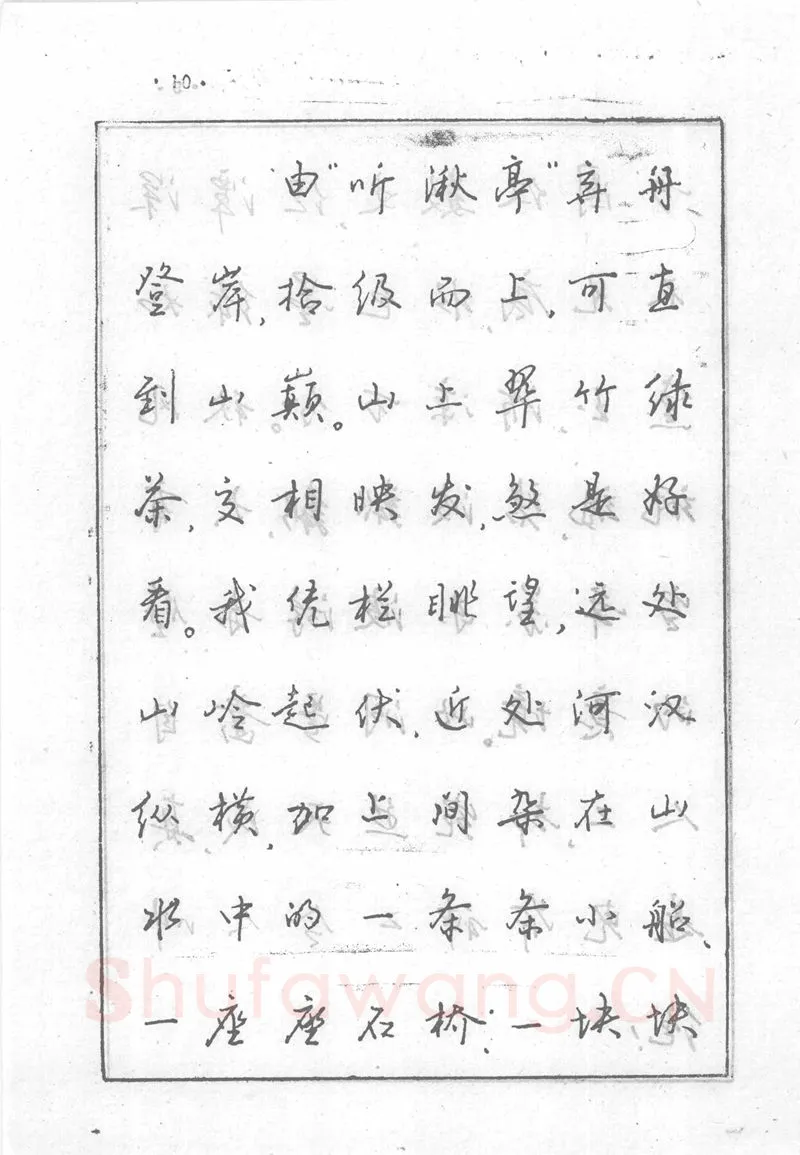 ·60·
由“听湫亭”弃舟
登岸，拾级而上，可直
到山巅。山上翠竹绿
茶，交相映发，煞是好
看。我凭栏眺望，远处
山岭起伏，近处河汊
纵横，加上间杂在山
水中的一条条小船、
一座座石桥、一块块
Shufawang.CN